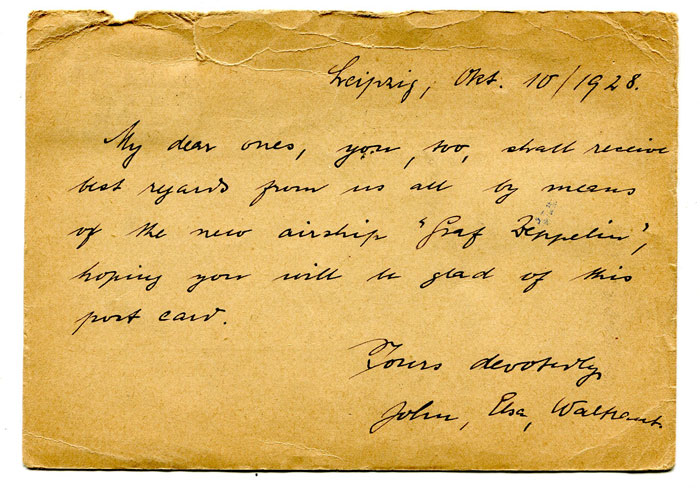 Leipzig, Okt. 10/1928.
My dear ones, you, too, shall receive
best regards from us all by means
of the new airship "Graf Zeppelin",
hoping you will be glad of this
post card.
Yours devotedly
John, Elsa, Waltraut